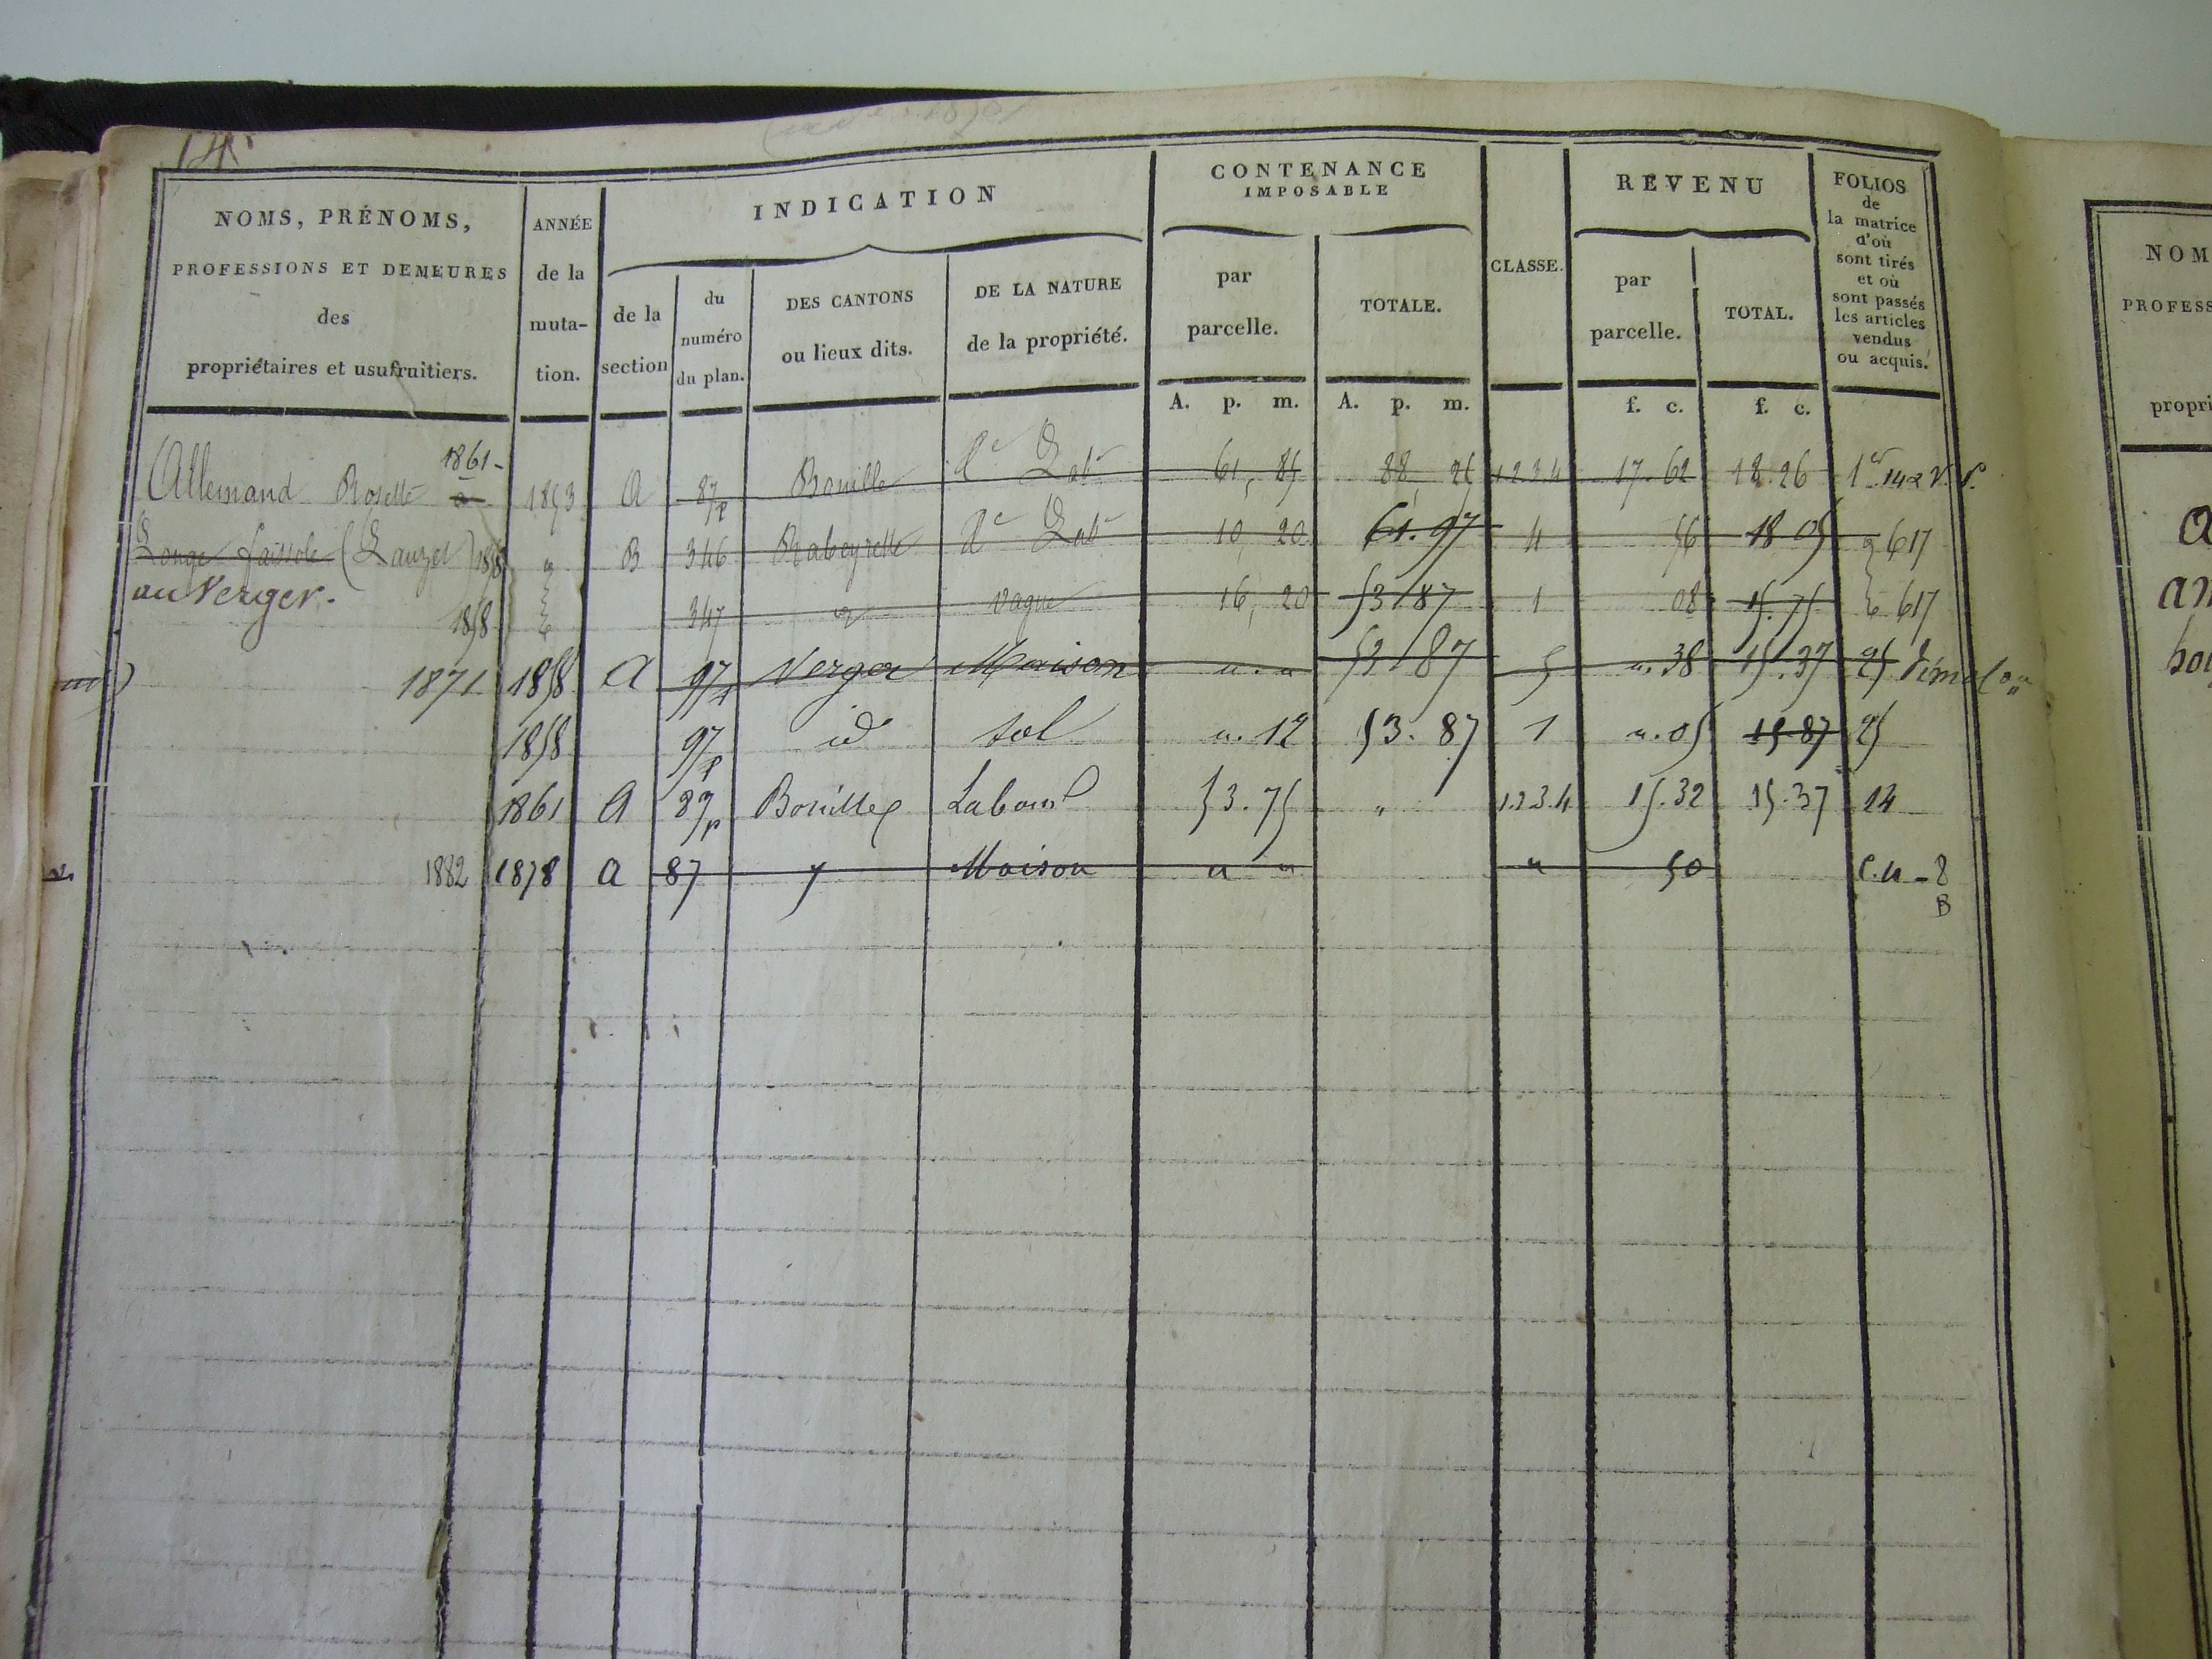 14
NOMS, PRÉNOMS,
PROFESSIONS ET DEMEURES
des
propriétaires et usufruitiers.
ANNÉE
de la
muta-
tion.
INDICATION
de la
section
du
numéro
du plan.
DES CANTONS
ou lieux dits.
DE LA NATURE
de la propriété.
CONTENANCE
IMPOSABLE
par
parcelle.
TOTALE.
CLASSE.
REVENU
par
parcelle.
TOTAL.
FOLIOS
de
la matrice
d'où
sont tirés
et où
sont passés
les articles
vendus
ou acquis.
A. p. m. A. p. m. f. c. f. c.
Allemand Rosette 1861 1853 A 87p Bouille 61, 85 88, 25 1.2.3.4 17.62 18.26 1er 142
(Lauzet) 1858 B 346 Rabeyrette 10, 20 61.97 4 56 18 05 617
au Verger. 1858 347 vague 16, 20 53.87 1 08 15.75 617
1871 1858 A 97p Verger Maison " . " 53.87 5 ". 38 15.37 25
1858 97p id sol ". 12 53.87 1 ". 05 15 87 25
1861 A 87p Bouilles Labour 53.75 " 1.2.3.4 15.32 15.37 14
1882 1878 A 87 Maison " " " 50 C.n - 8
B
NOM
PROFESS
propri